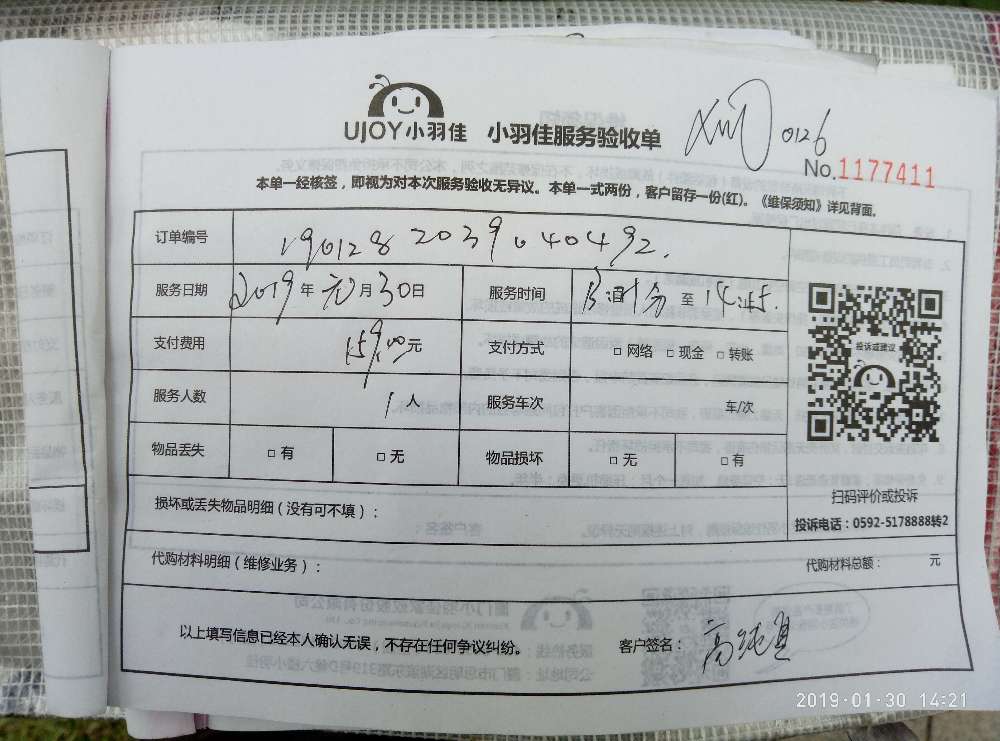 UJOY小羽佳 小羽佳服务验收单
0126
No.1177411
本单一经核签，即视为对本次服务验收无异议。本单一式两份，客户留存一份(红)。《维保须知》详见背面。
订单编号 190128 2039040492.
服务日期 2019年元月30日 服务时间 至
支付费用 159.00元 支付方式 □ 网络 □ 现金 □ 转账
服务人数 1人 服务车次 车/次
物品丢失 □ 有 □ 无 物品损坏 □ 无 □ 有
投诉或建议
扫码评价或投诉
投诉电话：0592-5178888转2
损坏或丢失物品明细（没有可不填）：
代购材料明细（维修业务）： 代购材料总额： 元
以上填写信息已经本人确认无误，不存在任何争议纠纷。 客户签名：
2019-01-30 14:21